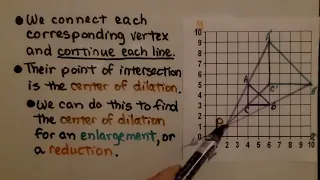 • We connect each
corresponding vertex
and continue each line.
• Their point of intersection
is the center of dilation.
• We can do this to find
the center of dilation
for an enlargement, or
a reduction.
10
9
8
7
6
5
4
3
2
1
0 1 2 3 4 5 6 7 8 9 10